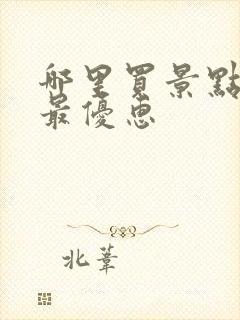 哪里買景點
最優惠
北葦